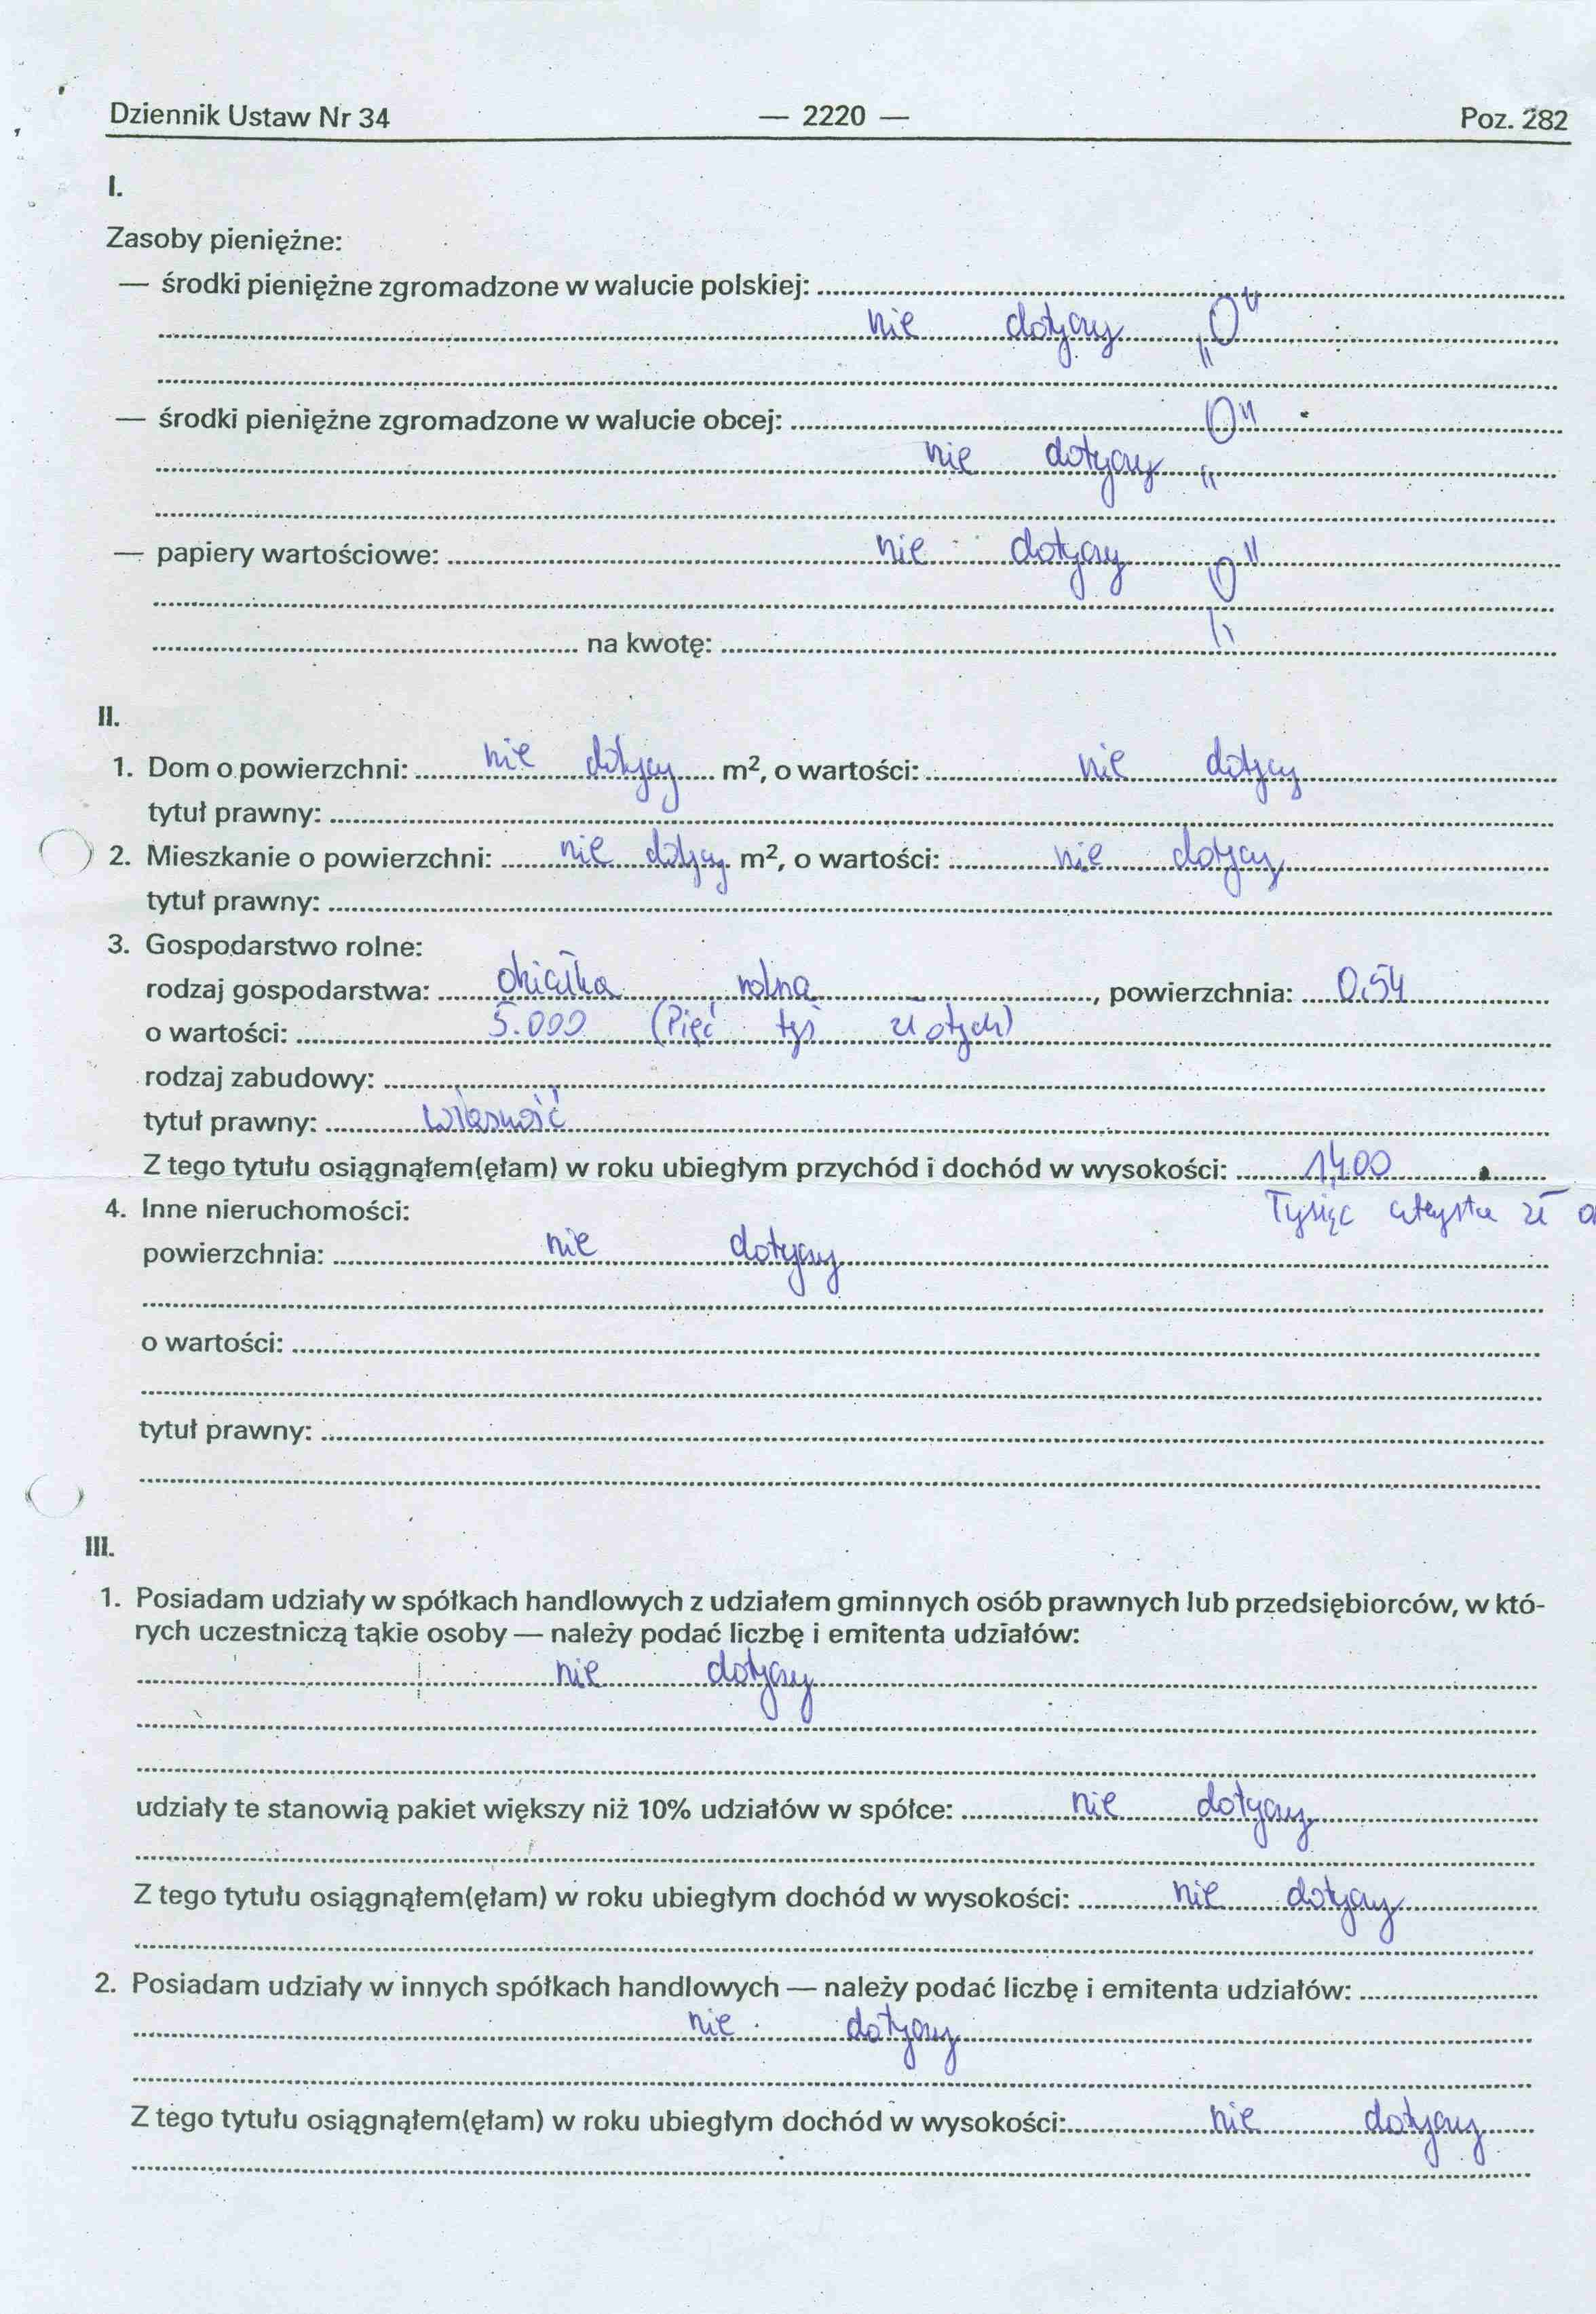 Dziennik Ustaw Nr 34 — 2220 — Poz. 282
I.
Zasoby pieniężne:
— środki pieniężne zgromadzone w walucie polskiej:
nie dotyczy „0"
— środki pieniężne zgromadzone w walucie obcej:
nie dotyczy „0"
— papiery wartościowe: nie dotyczy „0"
na kwotę:
II.
1. Dom o powierzchni: nie dotyczy m², o wartości: nie dotyczy
tytuł prawny:
2. Mieszkanie o powierzchni: nie dotyczy m², o wartości: nie dotyczy
tytuł prawny:
3. Gospodarstwo rolne:
rodzaj gospodarstwa: działka rolna, powierzchnia: 0,54
o wartości: 5.000 (Pięć tyś złotych)
rodzaj zabudowy:
tytuł prawny: własność
Z tego tytułu osiągnąłem(ęłam) w roku ubiegłym przychód i dochód w wysokości: 1400
Tysiąc czterysta zł
4. Inne nieruchomości:
powierzchnia: nie dotyczy
o wartości:
tytuł prawny:
III.
1. Posiadam udziały w spółkach handlowych z udziałem gminnych osób prawnych lub przedsiębiorców, w któ-
rych uczestniczą takie osoby — należy podać liczbę i emitenta udziałów:
nie dotyczy
udziały te stanowią pakiet większy niż 10% udziałów w spółce: nie dotyczy
Z tego tytułu osiągnąłem(ęłam) w roku ubiegłym dochód w wysokości: nie dotyczy
2. Posiadam udziały w innych spółkach handlowych — należy podać liczbę i emitenta udziałów:
nie dotyczy
Z tego tytułu osiągnąłem(ęłam) w roku ubiegłym dochód w wysokości: nie dotyczy